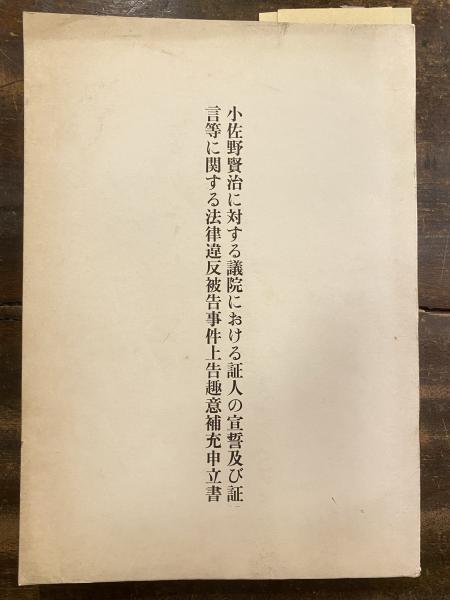 小佐野賢治に対する議院における証人の宣誓及び証
言等に関する法律違反被告事件上告趣意補充申立書